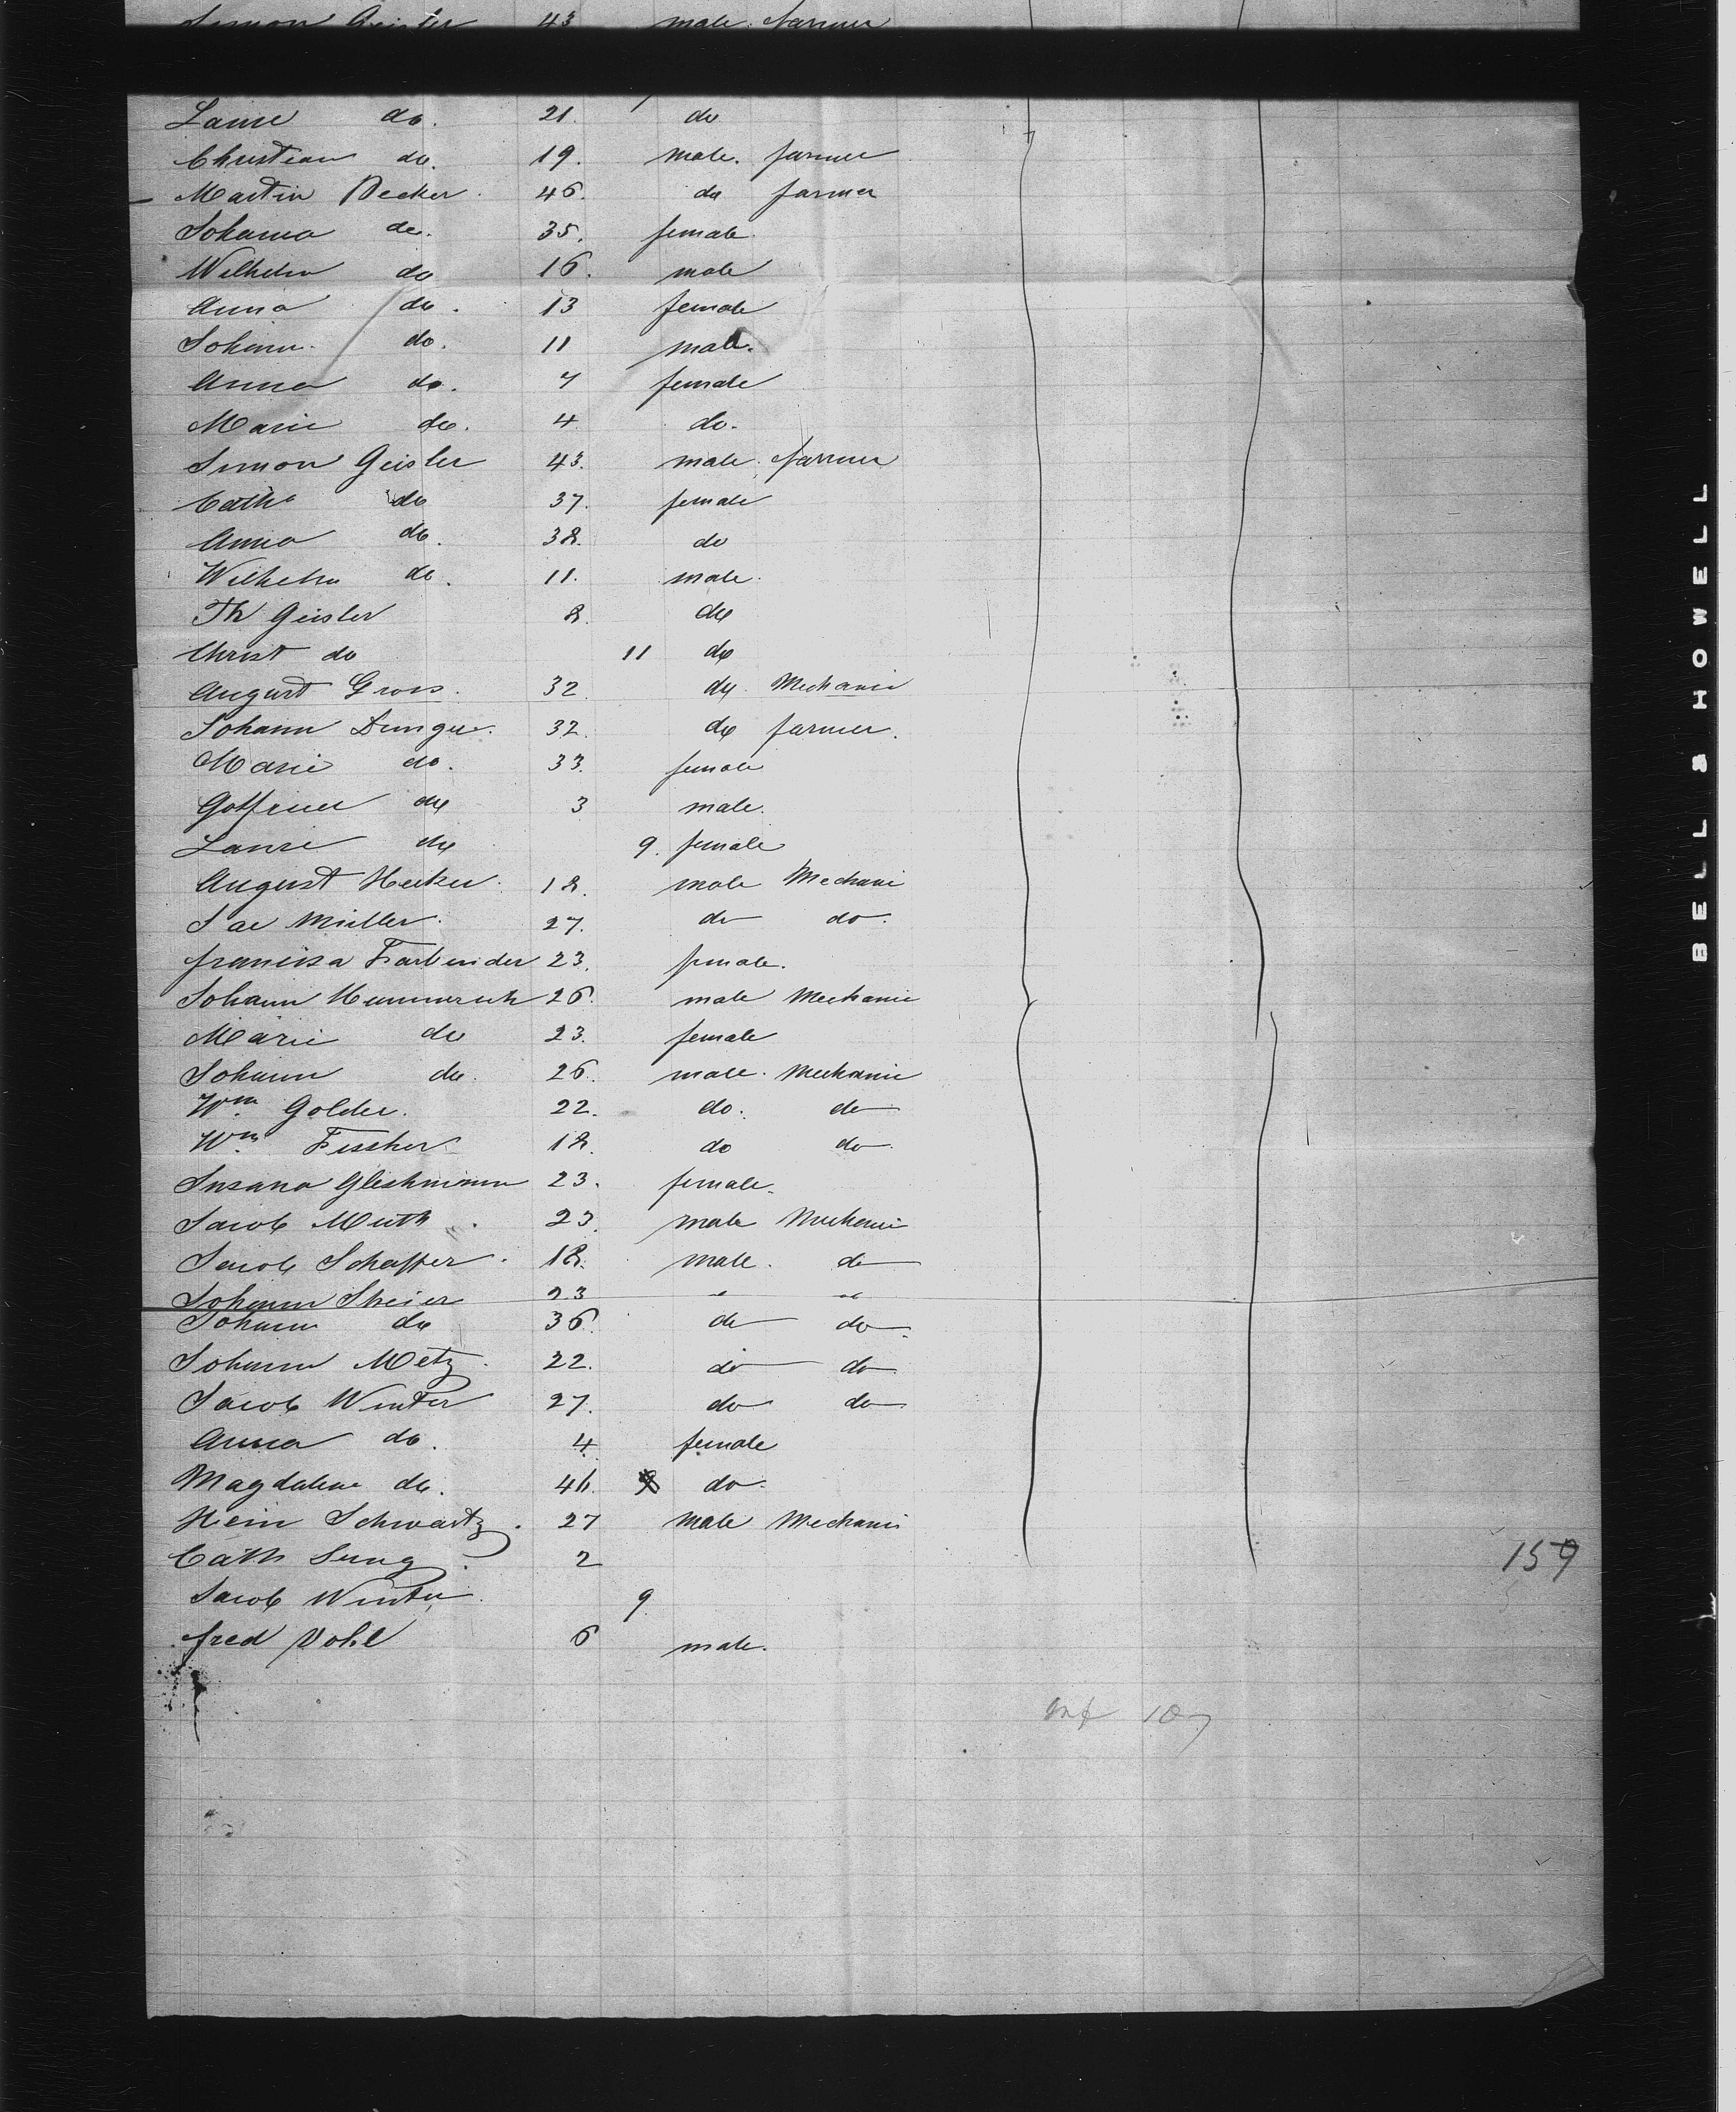 Simon Geisler 43 male. farmer
Laure do. 21. do
Christian do. 19. male. farmer
Martin Becker. 46. do farmer
Johanna do. 35. female
Wilhelm do 16. male
Anna do. 13 female
Johann. do. 11 male.
Anna do. 7 female
Marie do. 4 do.
Simon Geisler 43. male. farmer
Cath. do 37. female
Anna do. 38. do
Wilhelm do. 11. male.
Th Geisler 8. do
Christ do 11 do
August Gross. 32. do. Mechanic
Johann Dunger. 32. do farmer.
Marie do. 33. female
Gotfried do 3 male.
Laure do 9. female
August Hecker. 18. male Mechanic
Jac Müller. 27. do do.
francisca Farbender 23. female.
Johann Hummerich 26. male Mechanic
Marie do 23. female
Johann do. 26. male. Mechanic
Wm Golder. 22. do. do
Wm. Fischer 18. do do
Susana Gleshmann 23. female.
Jacob Muth. 23. male Mechanic
Jacob Schaffer. 18. male. do
Johann Speier 23
Johann do 36. do do.
Johann Metz. 22. do do
Jacob Winter 27. do do
Anna do. 4. female
Magdalene do. 46. do.
Hein Schwartz. 27 male Mechanic
Cath Jung. 2 159
Jacob Winter. 9.
fred Pohl 6 male.
inf 10
BELL & HOWELL